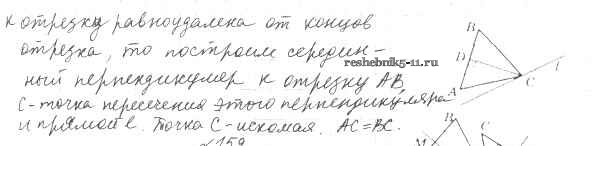 к отрезку равноудалена от концов
отрезка, то построим середин-
ный перпендикуляр к отрезку AB,
C-точка пересечения этого перпендикуляра
и прямой l. Точка C-искомая. AC=BC.
reshebnik5-11.ru
B
D
A
C
l
M
B
C
159